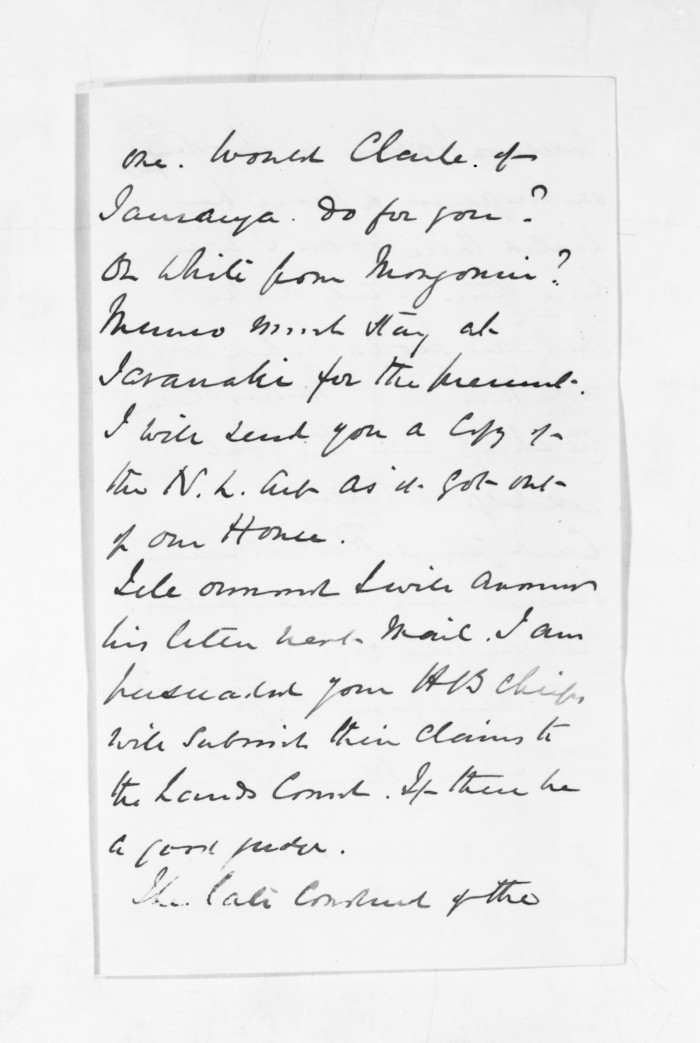 one. Would Clarke of
Tauranga. do for you?
Or White from Mongonui?
Munro must stay at
Taranaki for the present.
I will send you a Copy of
the N. L. Act as it got out
of our House.
Tell Ormond I will answer
his letter next Mail. I am
persuaded your HB Chiefs
will submit their claims to
the Lands Court. If there be
a good judge.
The late Conduct of the